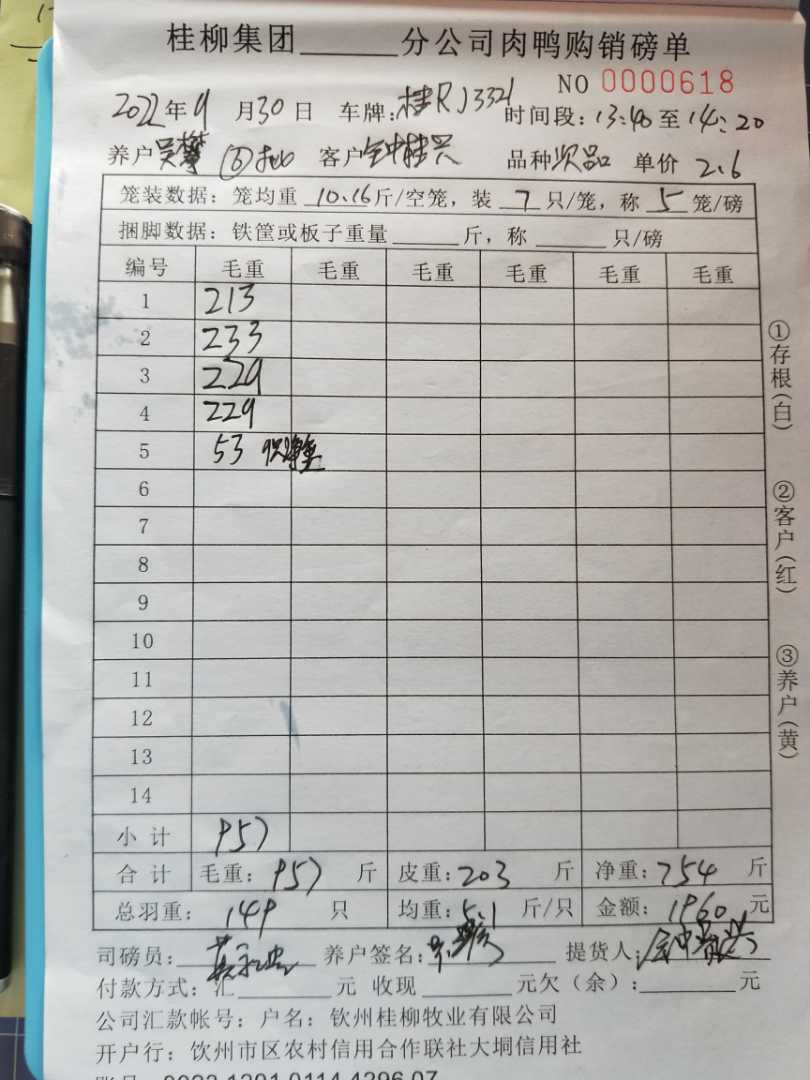 桂柳集团______分公司肉鸭购销磅单
NO 0000618
2022年9月30日 车牌:桂RJ3321 时间段:13:40至14:20
养户吴攀 ⑥批 客户钟桂兴 品种次品 单价2.6
笼装数据:笼均重 10.16斤/空笼,装 7 只/笼,称 5 笼/磅
捆脚数据:铁筐或板子重量______斤,称______只/磅
编号 毛重 毛重 毛重 毛重 毛重 毛重
1 213
2 233
3 229
4 229
5 53 9只净重
6
7
8
9
10
11
12
13
14
小计 957
合计 毛重:957 斤 皮重:203 斤 净重:754 斤
总羽重: 149 只 均重:5.1 斤/只 金额:1960 元
司磅员: 养户签名:吴攀 提货人:钟桂兴
付款方式:汇______元 收现______元欠(余):______元
公司汇款帐号:户名:钦州桂柳牧业有限公司
开户行:饮州市区农村信用合作联社大垌信用社
①存根(白)
②客户(红)
③养户(黄)